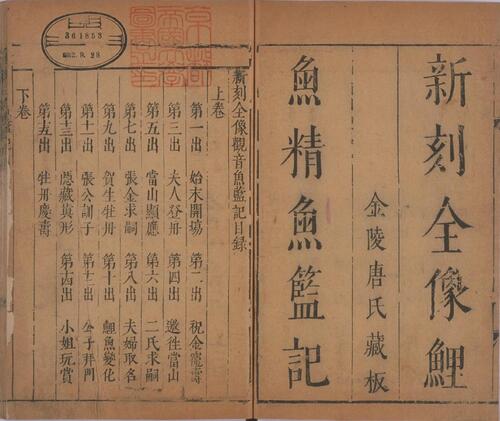 新刻全像鯉
金陵唐氏藏板
魚精魚籃記
新刻全像觀音魚籃記目録
上卷
第一出 始末開場 第二出 祝金寵壽
第三出 夫人登 第四出 邀往當山
第五出 當山顯應 第六出 二氏求嗣
第七出 張金求嗣 第八出 夫婦取名
第九出 賀生牡丹 第十出 鯉魚變化
第十一出 張公訓子 第十二出 公子拜門
第十三出 隱藏真形 第十四出 小姐玩賞
第十五出 牡丹慶壽
下卷
361853
2. 9. 28
京都
帝國大學
圖書之印